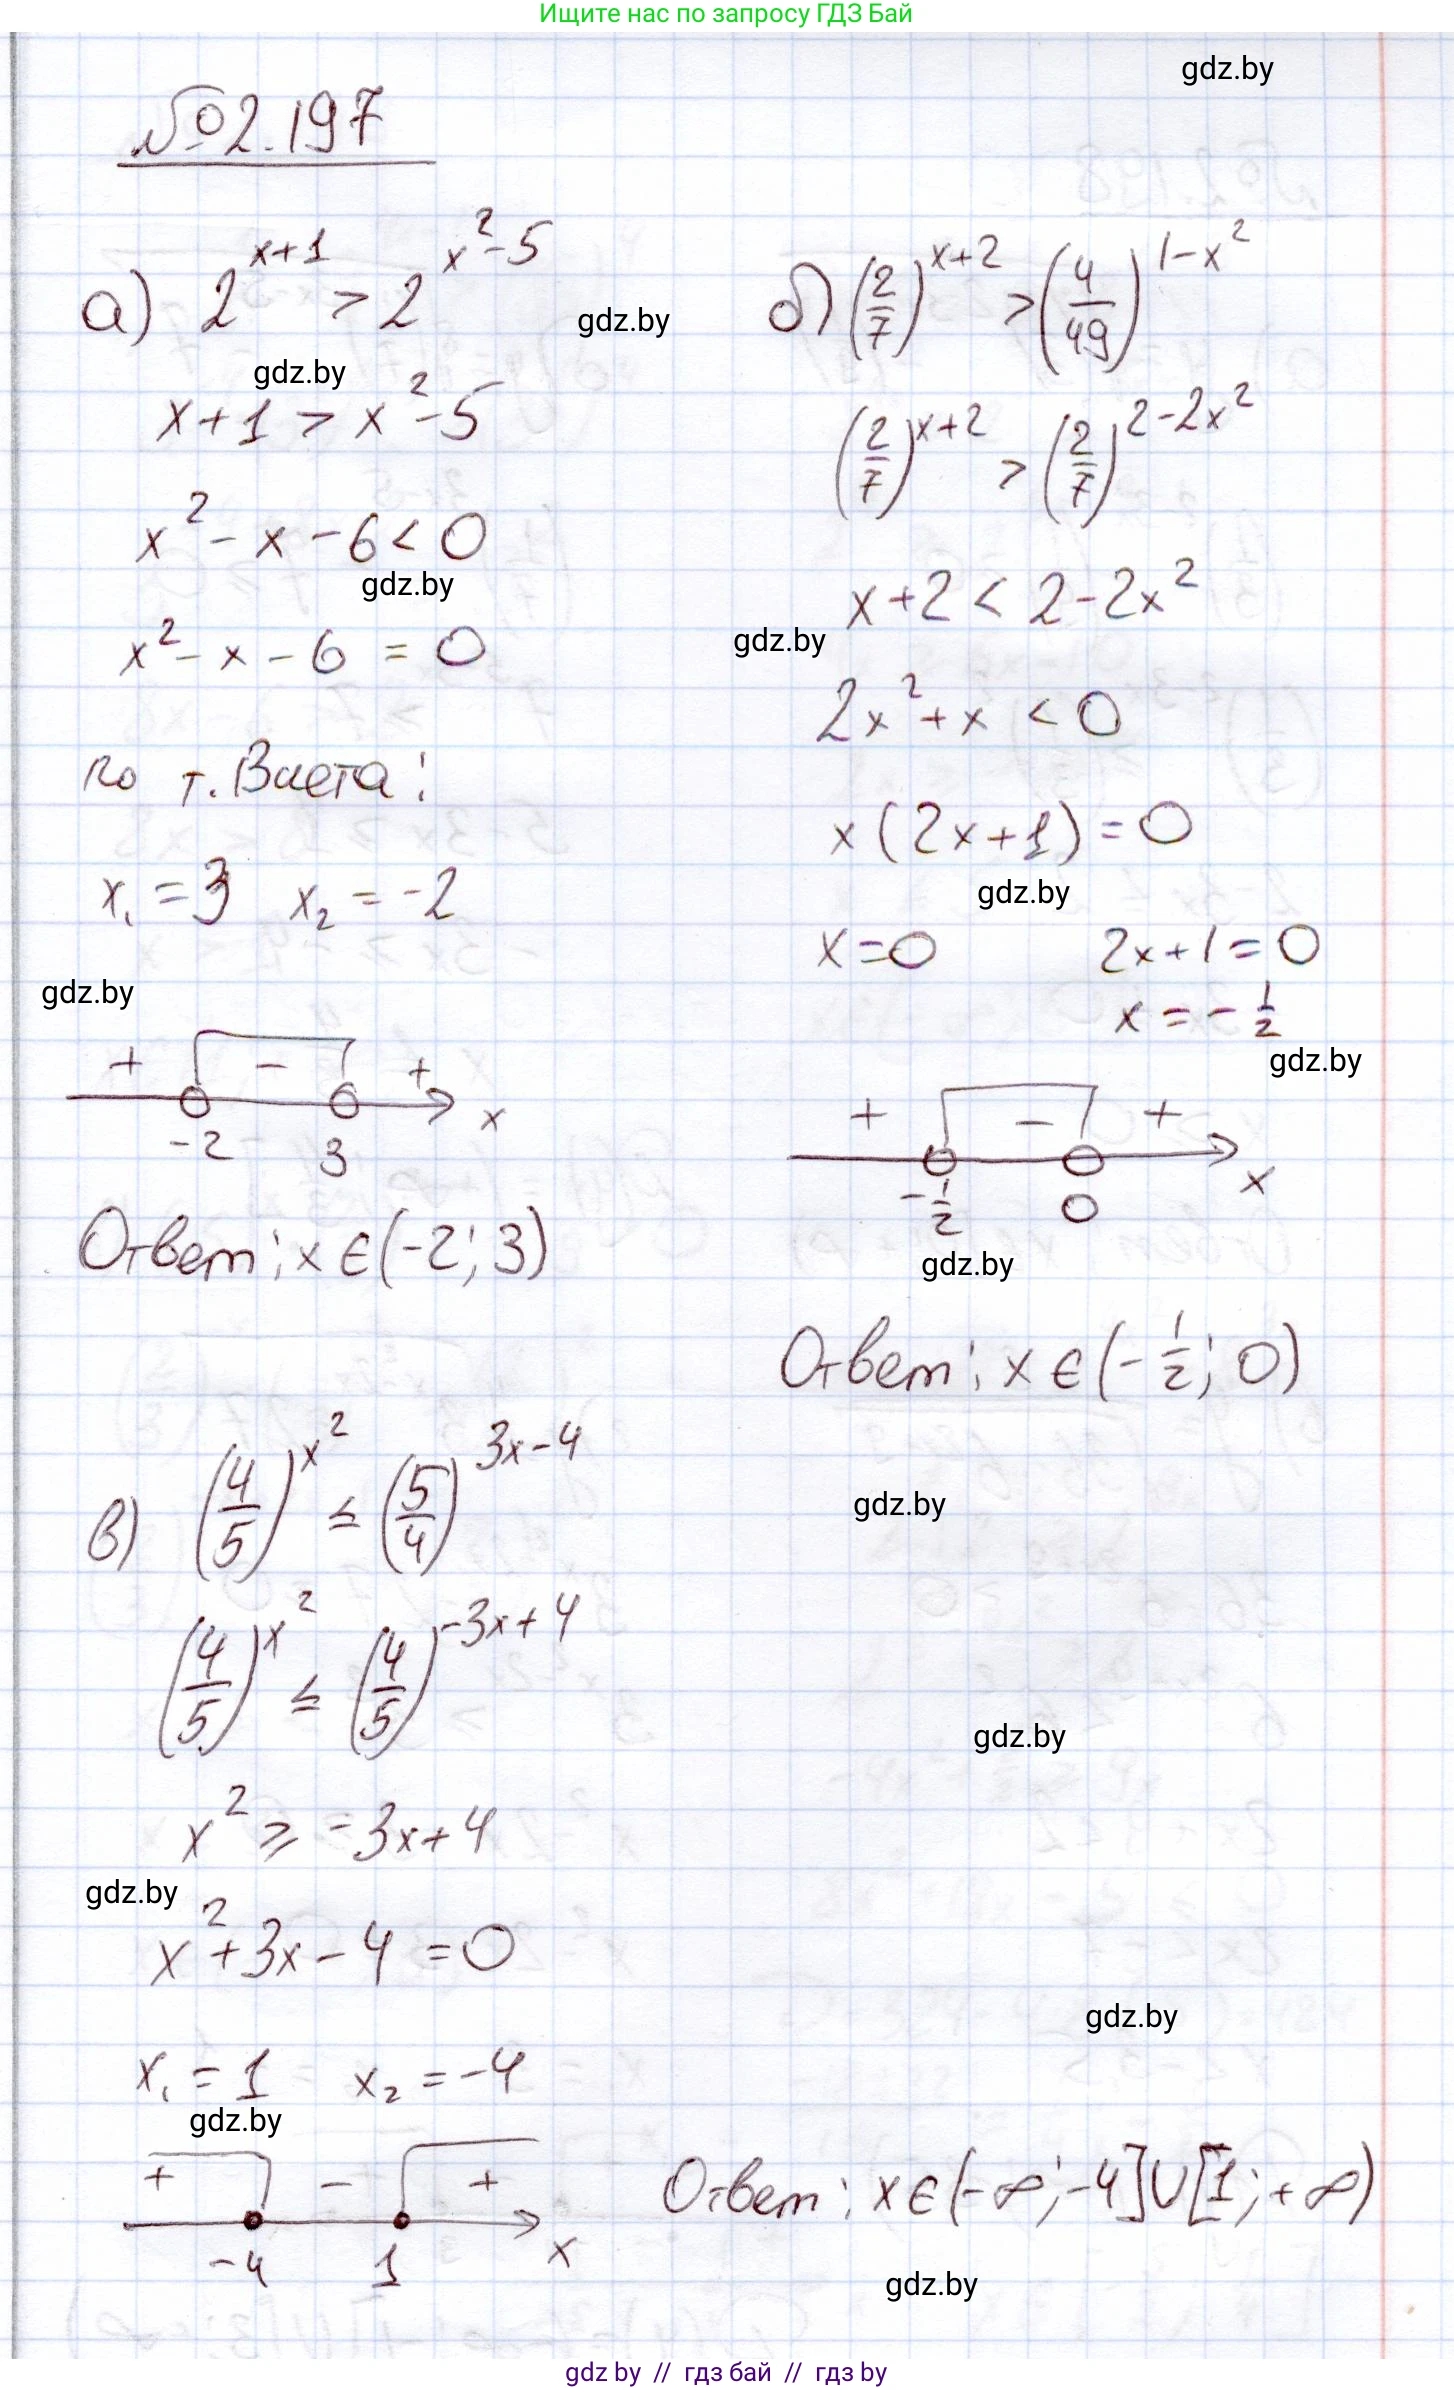 Ищите нас по запросу ГДЗ Бай
gdz.by
№2.197
а) 2^(x+1) > 2^(x²-5)
gdz.by
gdz.by
x+1 > x²-5
x²-x-6<0
gdz.by
x²-x-6=0
по т. Виета:
x₁=3 x₂=-2
gdz.by
+ - + x
-2 3
Ответ: x∈(-2; 3)
б) (2/7)^(x+2) > (4/49)^(1-x²)
(2/7)^(x+2) > (2/7)^(2-2x²)
x+2 < 2-2x²
gdz.by
2x²+x < 0
x(2x+1)=0
gdz.by
x=0 2x+1=0
x=-1/2
gdz.by
+ - + x
-1/2 0
gdz.by
Ответ: x∈(-1/2; 0)
в) (4/5)^(x²) ≤ (5/4)^(3x-4)
gdz.by
(4/5)^(x²) ≤ (4/5)^(-3x+4)
gdz.by
x² ≥ -3x+4
gdz.by
x²+3x-4=0
gdz.by
x₁=1 x₂=-4
gdz.by
+ - + x
-4 1
Ответ: x∈(-∞; -4]∪[1; +∞)
gdz.by
gdz by // гдз бай // гдз by